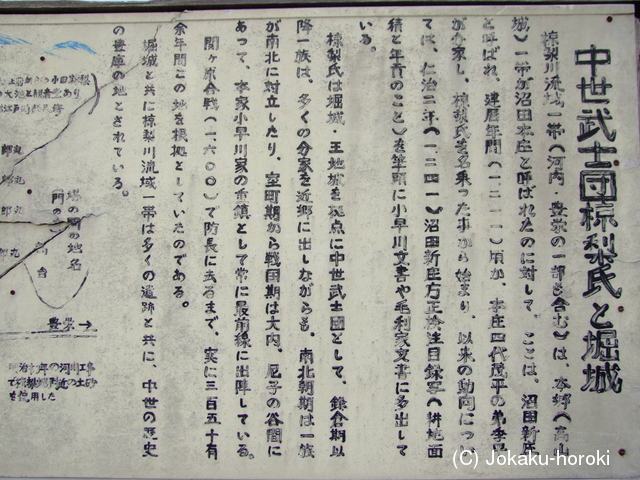 中世武士団椋梨氏と堀城
椋梨川流域一帯(河内・豊栄の一部も含む)は、本郷(高山
城)一帯が沼田本庄と呼ばれたのに対して、ここは、沼田新庄
と呼ばれ、建暦年間(一二一一)頃か、本庄四代茂平の弟季平
が分家し、椋梨氏を名乗った事から始まり、以来の動向につい
ては、仁治二年(一二四一)沼田新庄方正検注目録写(耕地面
積と年貢のこと)を筆頭に小早川文書や毛利家文書に多出して
いる。
椋梨氏は堀城・王地城を拠点に中世武士団として、鎌倉期以
降一族は、多くの分家を近郷に出しながらも、南北朝期は一族
が南北に対立したり、室町期から戦国期は大内、尼子の谷間に
あって、本家小早川家の重鎮として常に最前線に出陣している。
関ヶ原合戦(一六〇〇)で防長に去るまで、実に三百五十有
余年間この地を根拠としていたのである。
堀城と共に椋梨川流域一帯は多くの遺跡と共に、中世の歴史
の豊庫の地とされている。
豊栄→
(C) Jokaku-horoki